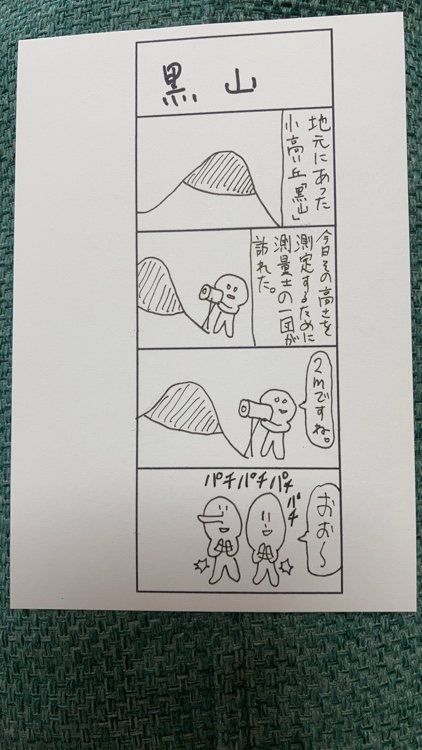 黒山
地元にあった
小高い丘「黒山」
今日その高さを
測定するために
測量士の一団が
訪れた。
2mですね。
おお〜
パチパチパチ
パチ